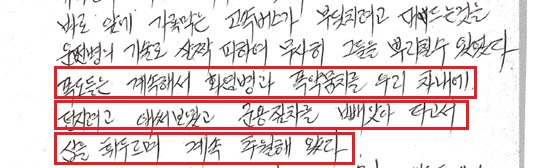 바로 앞에 가로막은 고속버스가 부딪치려고 덤벼드는것을
운전병의 기술로 살짝 피하여 무사히 그들을 뿌리칠수 있었다
폭도들은 계속해서 화염병과 폭약뭉치를 우리 차내에
던지려고 애써보았고 군용짚차를 빼앗아 타고서
삽을 휘두르며 계속 추월해 왔다